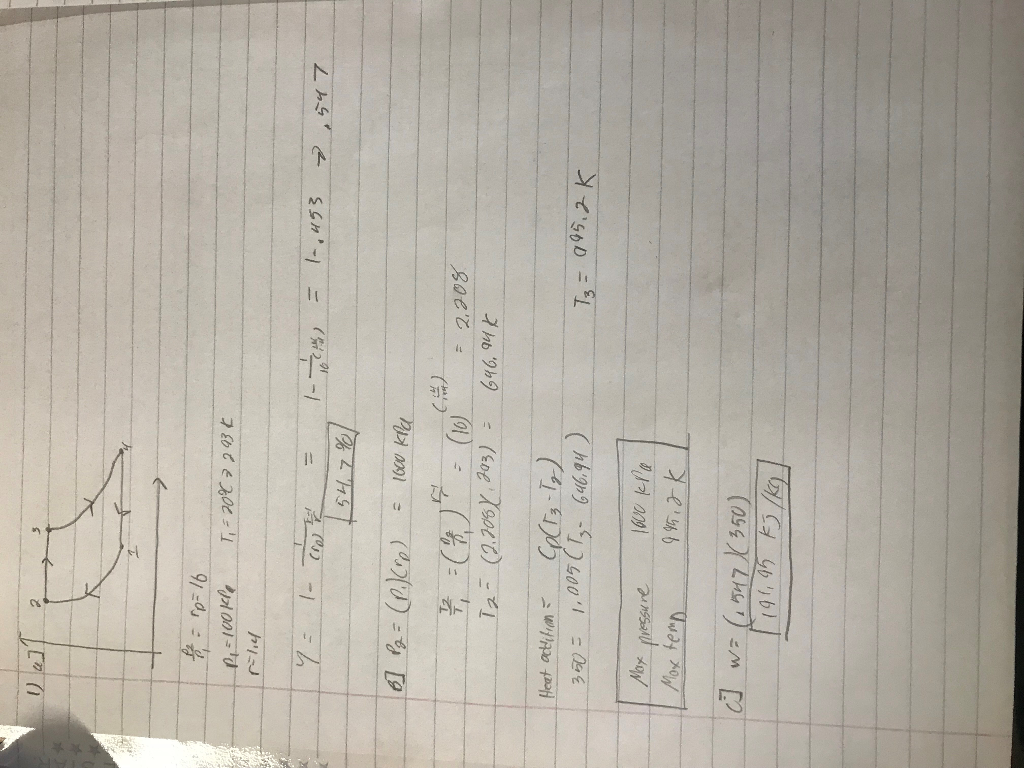 1) a]
2 3
1 4
P2/P1 = rp = 16
P1 = 100 kPa T1 = 20°C → 293 K
r = 1.4
η = 1 - 1/(rp)^((r-1)/r) = 1 - 1/16^(.4/1.4) = 1 - .453 → .547
54.7 %
B] P2 = (P1)(rp) = 1600 kPa
T2/T1 = (P2/P1)^((r-1)/r) = (16)^(.4/1.4) = 2.208
T2 = (2.208)(293) = 646.94 K
Heat addition = Cp(T3 - T2)
350 = 1.005(T3 - 646.94) T3 = 995.2 K
Max pressure 1600 kPa
Max temp 995.2 K
c] w = (.547)(350)
191.45 KJ/kg